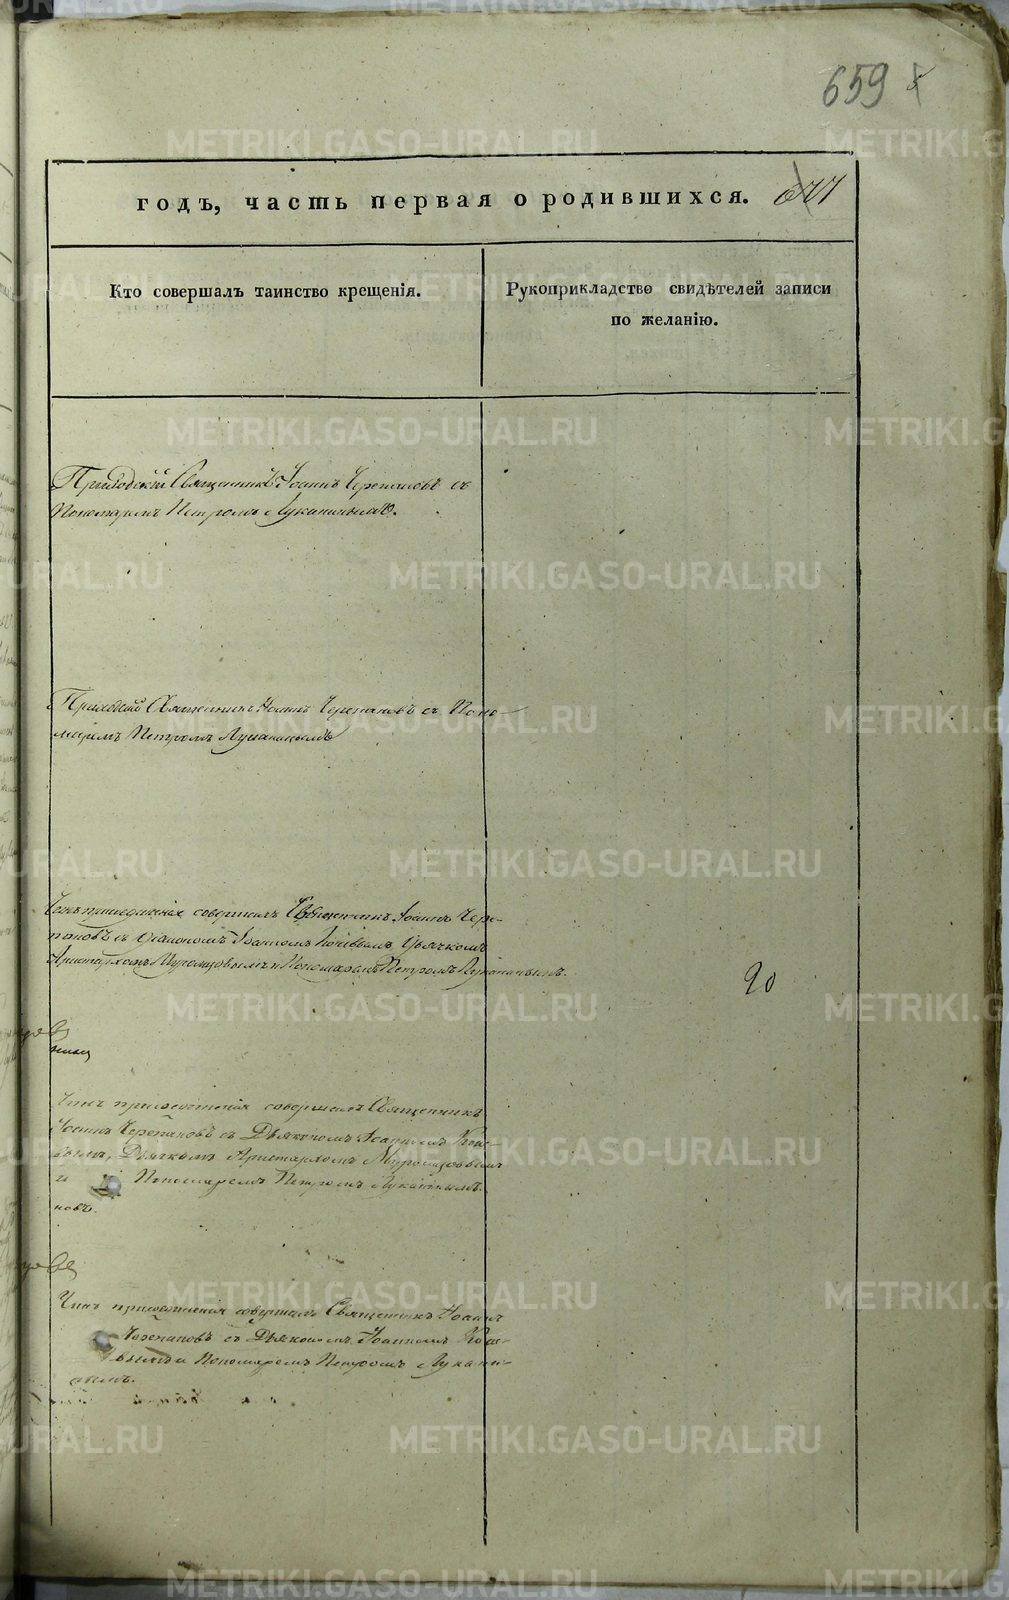 659
годъ, часть первая о родившихся.
Кто совершалъ таинство крещенія.
Рукоприкладство свидѣтелей записи
по желанію.
Приходскій Священникъ Іоаннъ Черепановъ съ
Пономаремъ Петромъ Луканинымъ.
Приходскій Священникъ Іоаннъ Черепановъ съ Поно-
маремъ Петромъ Луканинымъ
совершалъ Священникъ Іоаннъ Чере-
пановъ съ Діакономъ Іоанномъ Дьячкомъ
Аристархомъ и Пономаремъ Петромъ Луканинымъ.
20
Чинъ присоединенія совершалъ Священникъ
Іоаннъ Черепановъ съ Діякономъ Іоанномъ
Дьячкомъ Аристархомъ
и Пономаремъ Петромъ Луканинымъ
Чинъ присоединенія совершалъ Священникъ Іоаннъ
Черепановъ съ Діякономъ Іоанномъ
и Пономаремъ Петромъ Лукани-
нымъ.
METRIKI.GASO-URAL.RU